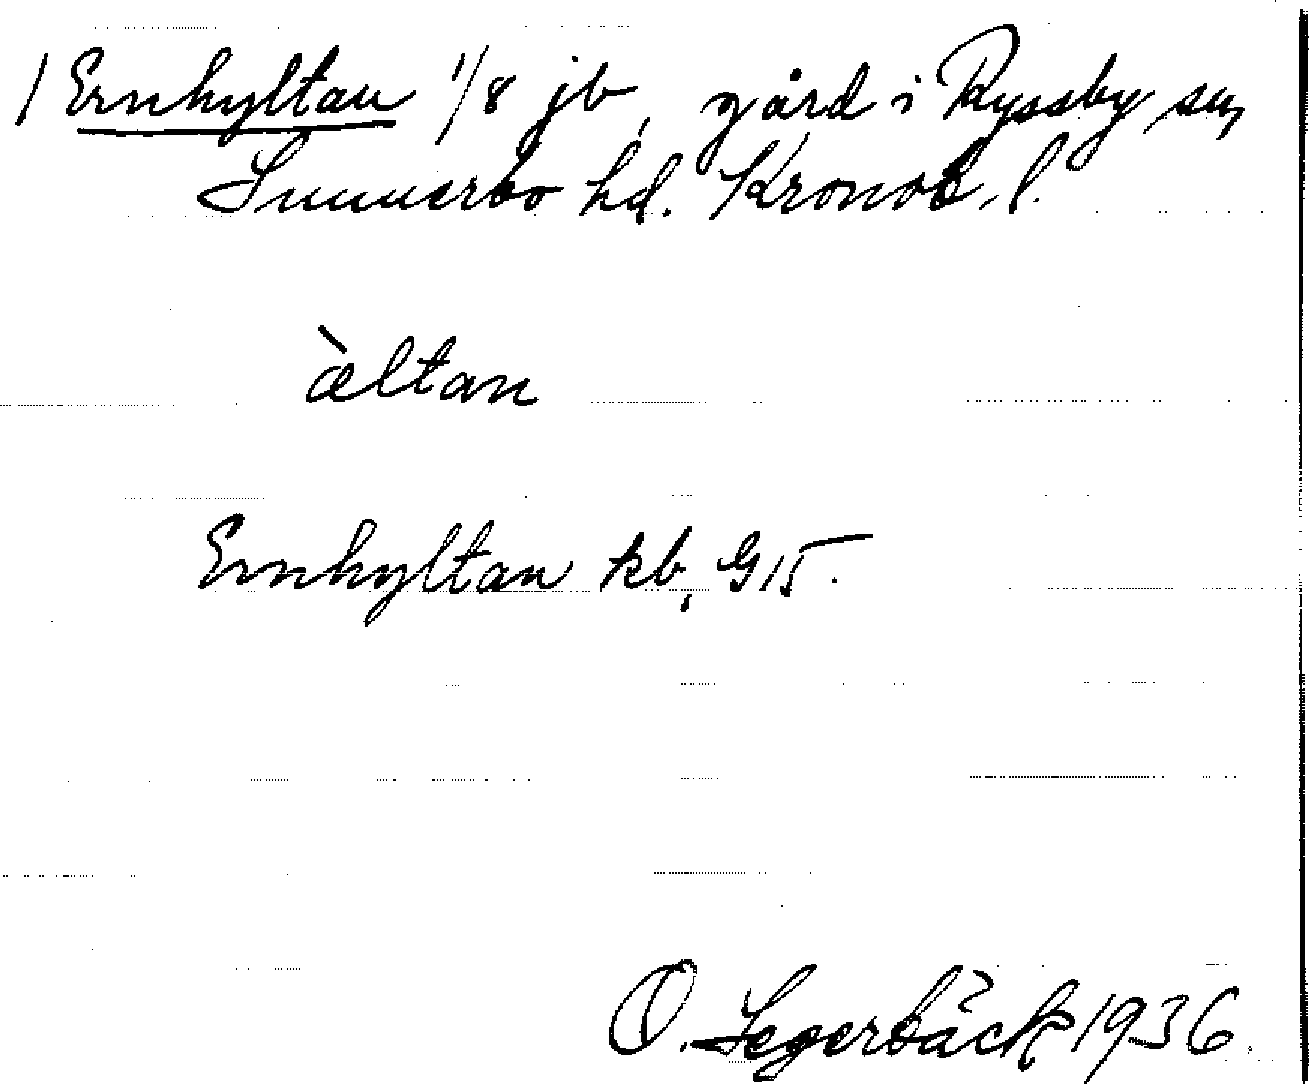 / Ernhyltan 1/8 jb, gård i Ryssby sn,
Sunnerbo hd. Kronob. l.
æ̀ltan
Ernhyltan kb, G15.
O. Segerbäck 1936.